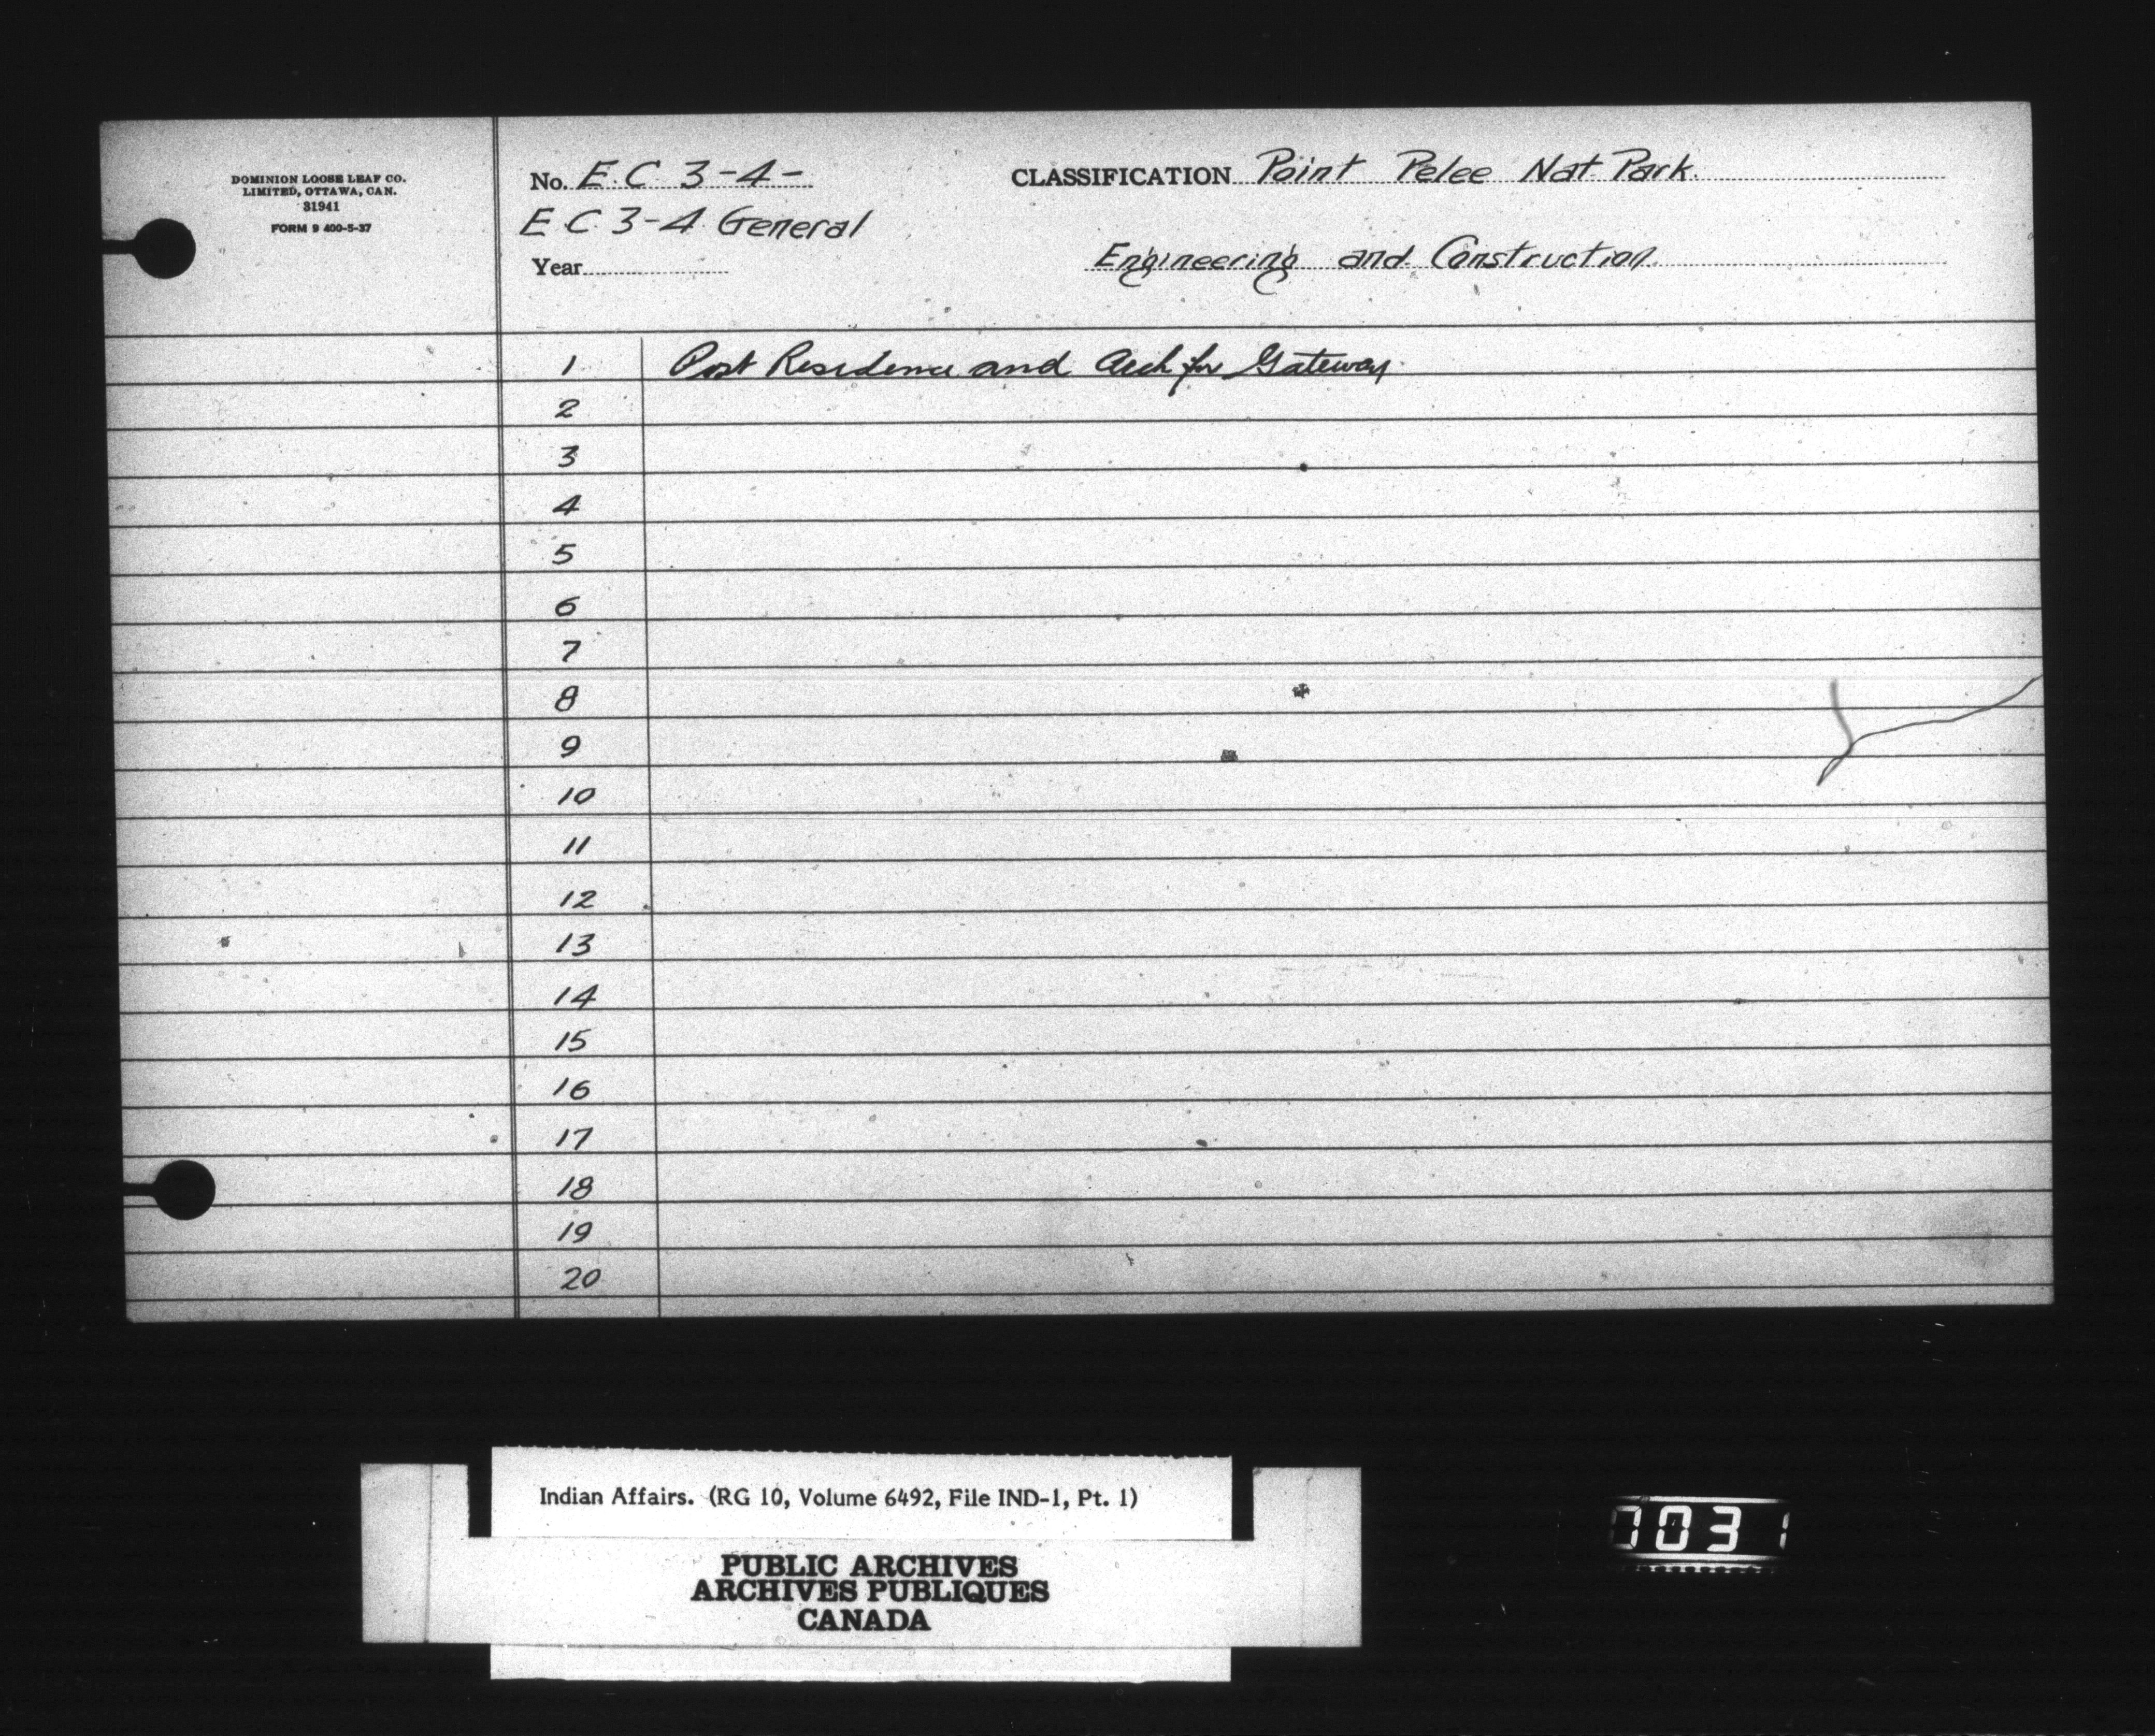 DOMINION LOOSE LEAF CO.
LIMITED, OTTAWA, CAN.
31941
FORM 9 400-5-37
No. E.C 3-4-
CLASSIFICATION Point Pelee Nat Park.
E C 3-4 General
Engineering and Construction
Year
1 Post Residence and Arch for Gateway.
2
3
4
5
6
7
8
9
10
11
12
13
14
15
16
17
18
19
20
Indian Affairs. (RG 10, Volume 6492, File IND-1, Pt. 1)
PUBLIC ARCHIVES
ARCHIVES PUBLIQUES
CANADA